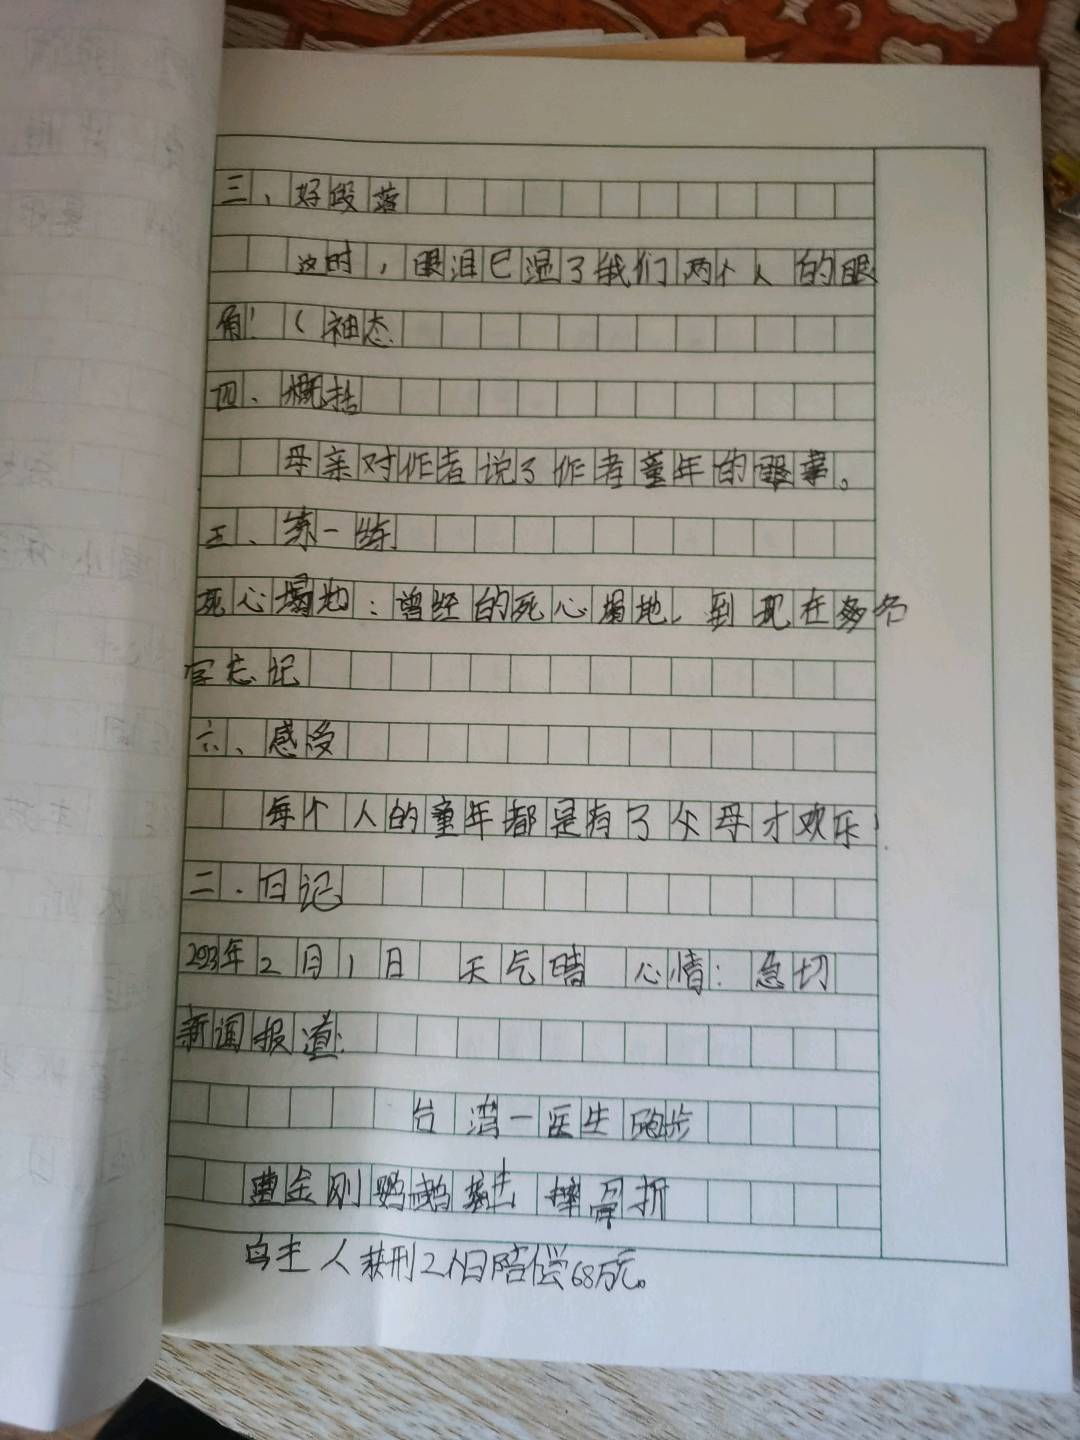 三、好段落
这时，眼泪已湿了我们两个人的眼
角！（神态
四、概括
母亲对作者说了作者童年的事。
五、练一练
死心塌地：曾经的死心塌地，到现在多名
字忘记
六、感受
每个人的童年都是有了父母才欢乐！
二.日记
2023年2月1日 天气晴 心情：急切
新闻报道：
台湾一医生跑步
遭金刚鹦鹉袭击 摔骨折
鸟主人获刑2个月陪偿68万元。